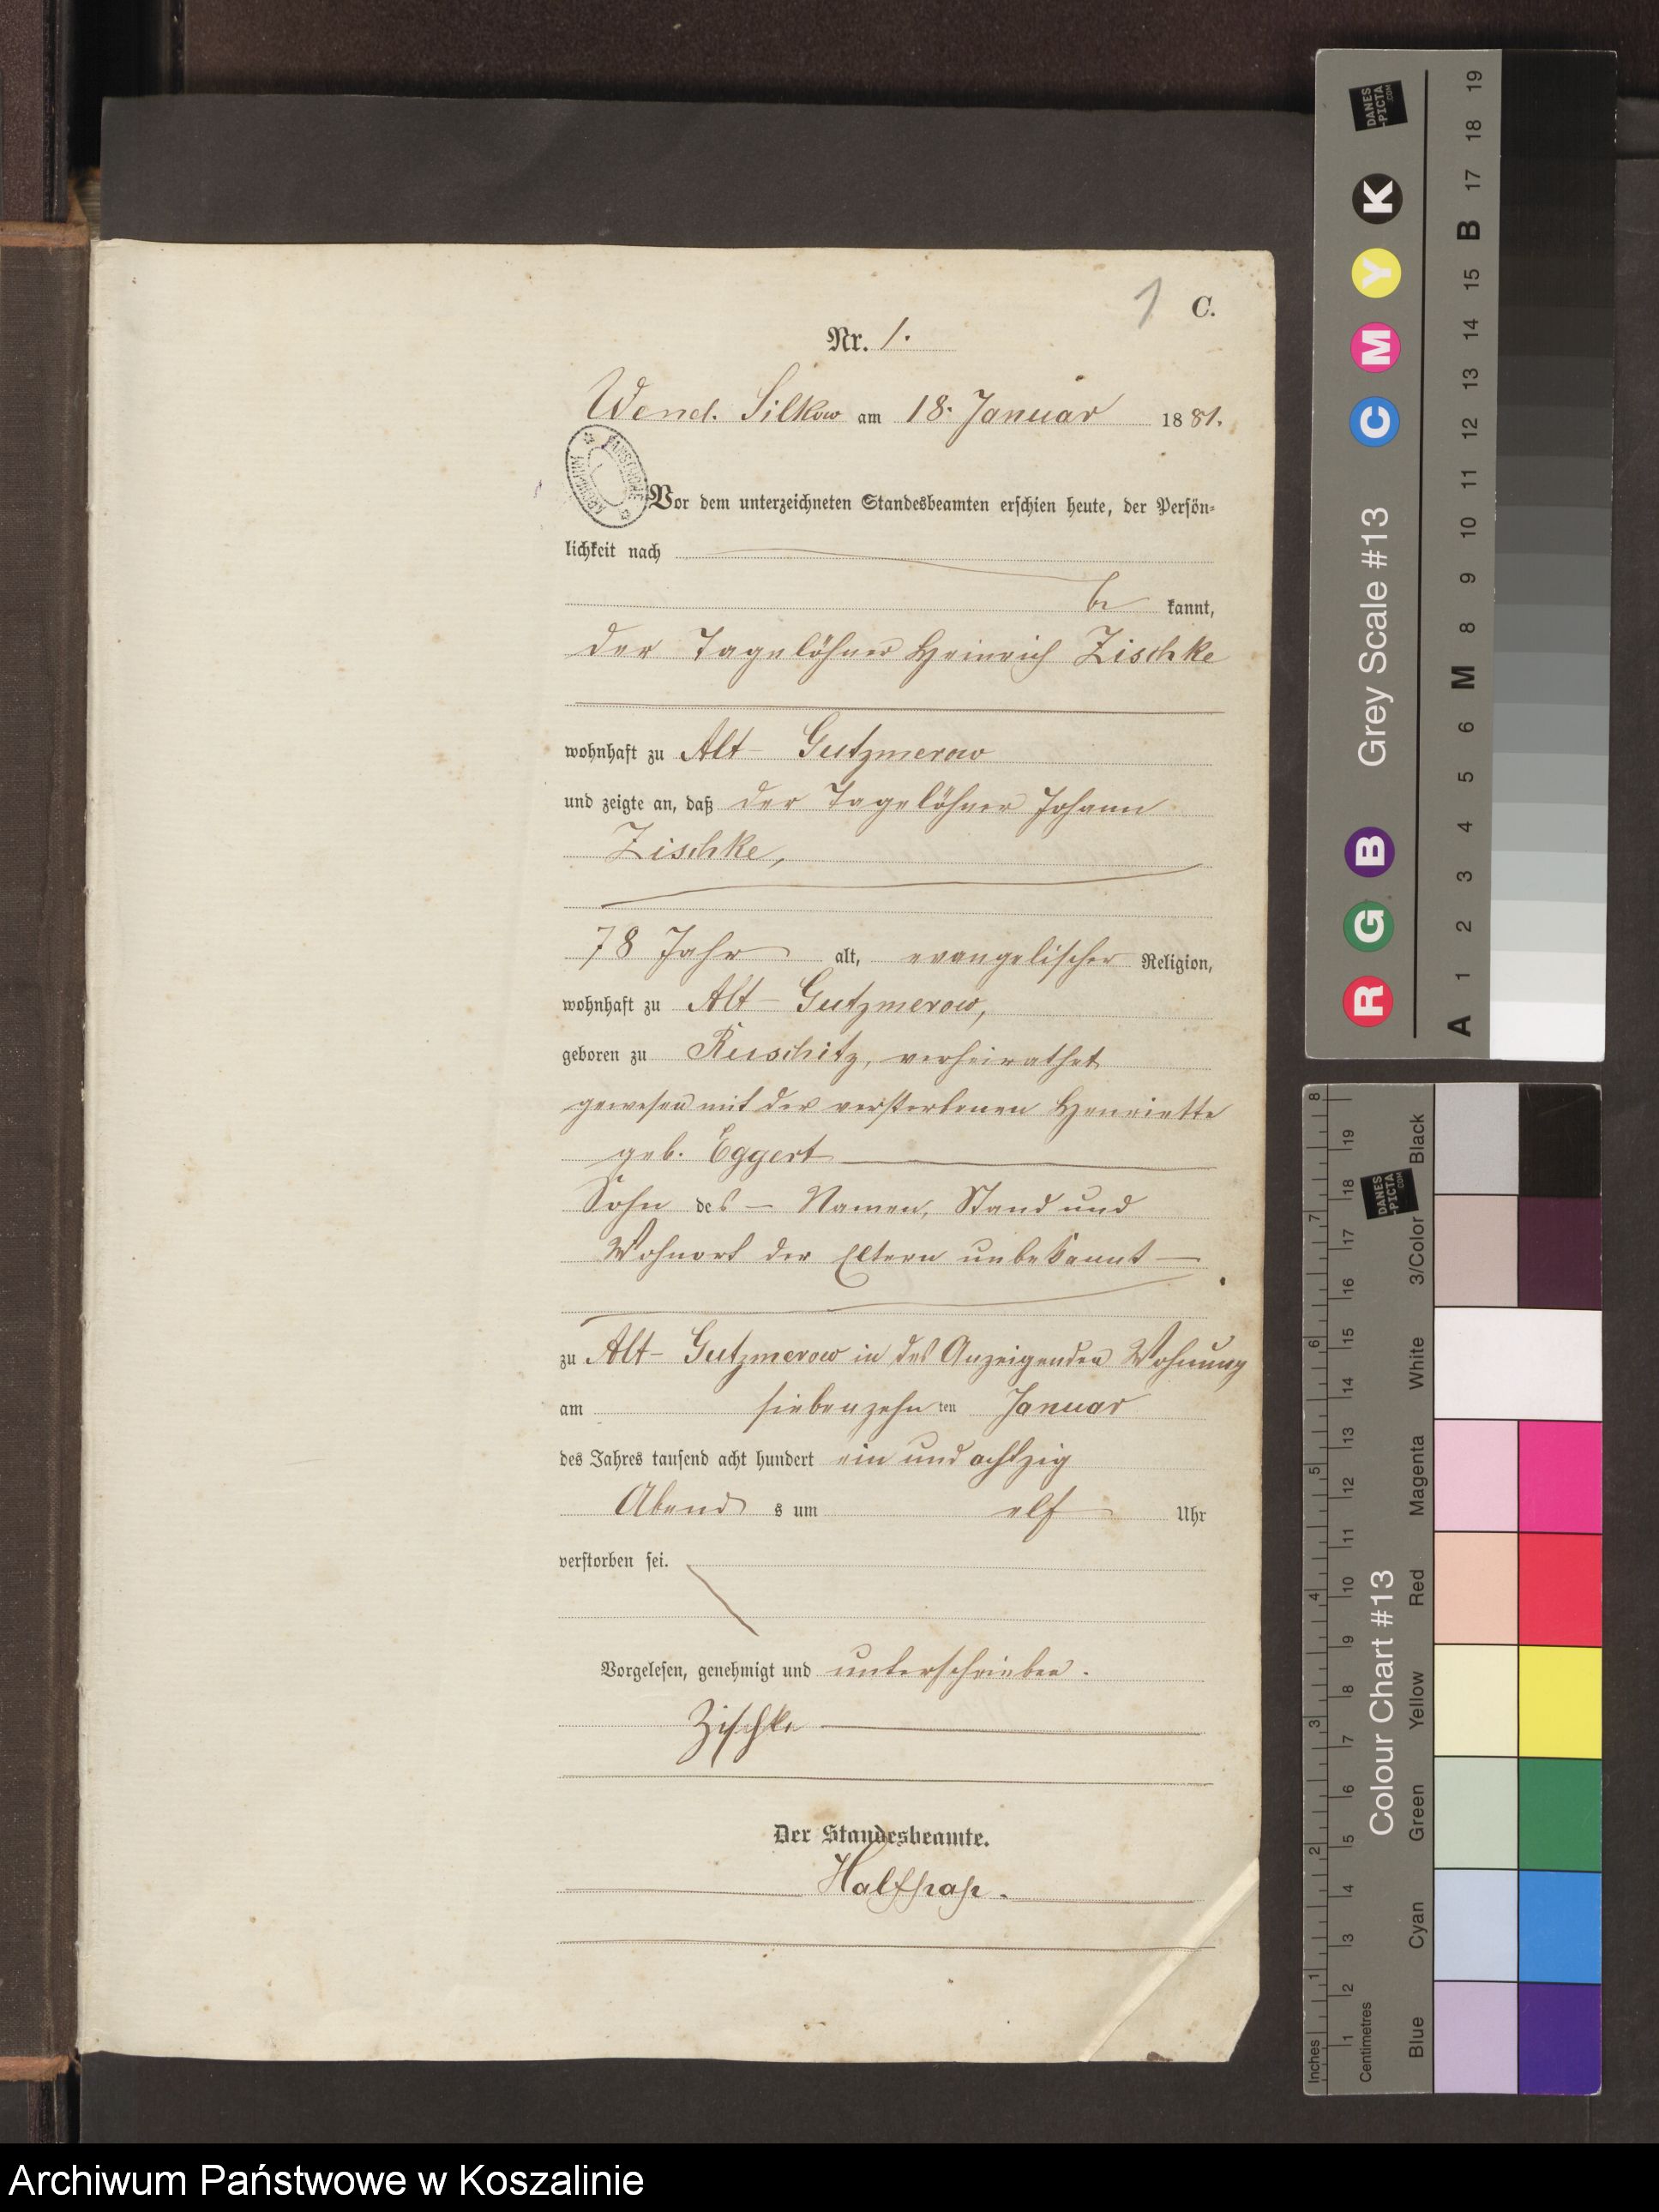 1 C.
Nr. 1.
Wend. Silkow am 18. Januar 1881.
Vor dem unterzeichneten Standesbeamten erschien heute, der Persön-
lichkeit nach
be kannt,
der Tagelöhner Heinrich Zischke
wohnhaft zu Alt-Gutzmerow
und zeigte an, daß der Tagelöhner Johann
Zischke,
78 Jahr alt, evangelischer Religion,
wohnhaft zu Alt-Gutzmerow,
geboren zu Ruschitz, verheirathet
gewesen mit der verstorbenen Henriette
geb. Eggert
Sohn des — Namen, Stand und
Wohnort der Eltern unbekannt —
zu Alt-Gutzmerow in des Anzeigenden Wohnung
am siebenzehn ten Januar
des Jahres tausend acht hundert ein und achtzig
Abend s um elf Uhr
verstorben sei.
Vorgelesen, genehmigt und unterschrieben.
Zischke
Der Standesbeamte.
Halfpap.
DANES
-PICTA
.COM
Grey Scale #13
R G B C M Y K
A 1 2 3 4 5 6 M 8 9 10 11 12 13 14 15 B 17 18 19
Colour Chart #13
DANES
-PICTA
.COM
Blue Cyan Green Yellow Red Magenta White 3/Color Black
Inches 1 2 3 4 5 6 7 8
Centimetres 1 2 3 4 5 6 7 8 9 10 11 12 13 14 15 16 17 18 19
Archiwum Państwowe w Koszalinie